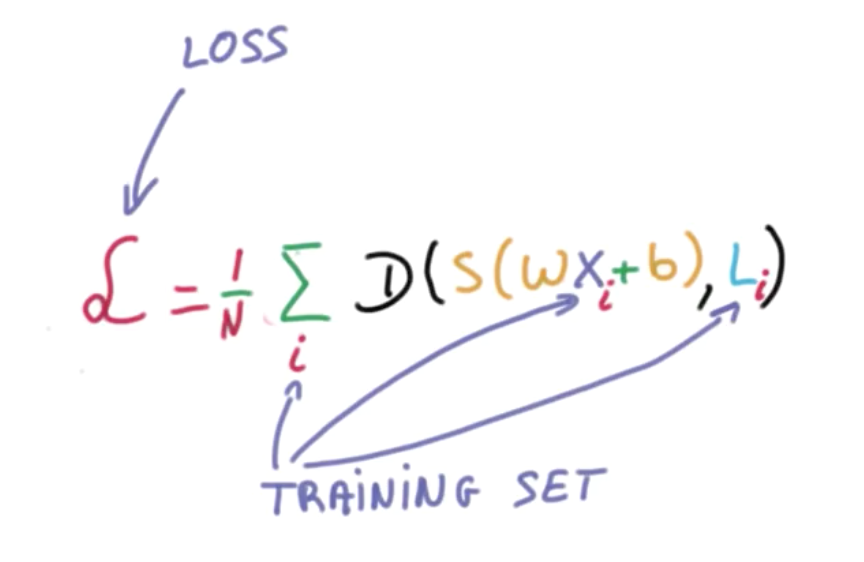 LOSS
ℒ = 1/N Σ D(S(WXi+b), Li)
i
TRAINING SET